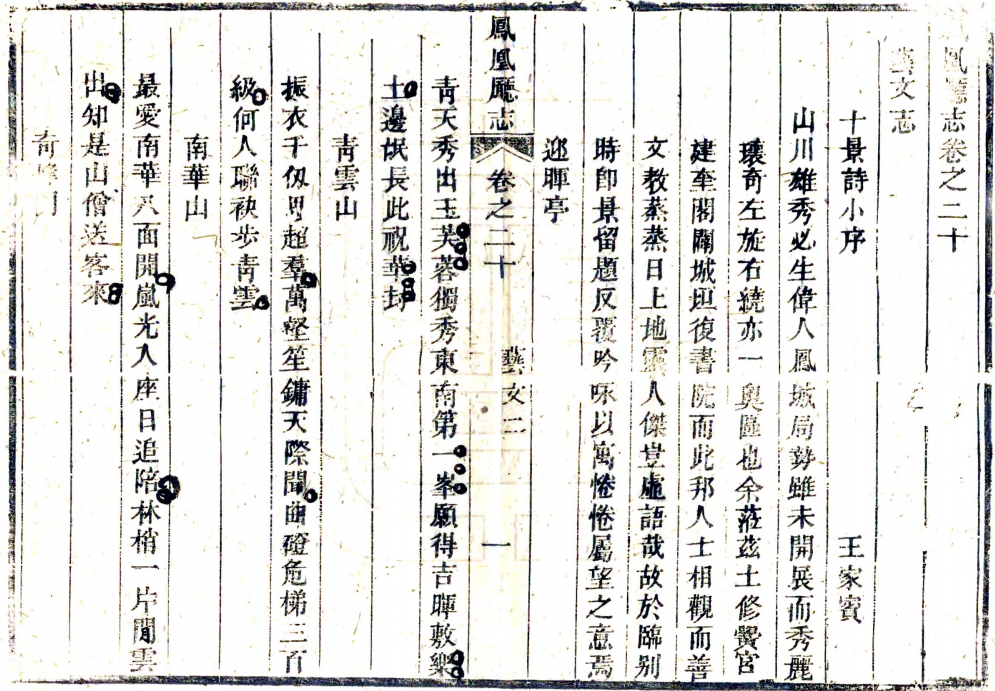 鳳凰廳志卷之二十
藝文志
十景詩小序 王家賓
山川雄秀必生偉人鳳城局勢雖未開展而秀麗
瓌奇左旋右繞亦一奧區也余蒞茲土修黌宮
建奎閣闢城垣復書院而此邦人士相觀而善
文教蒸蒸日上地靈人傑豈虛語哉故於臨别
時卽景留題反覆吟咏以寓惓惓屬望之意焉
迎暉亭
鳳凰廳志 卷之二十 藝文二 一
靑天秀出玉芙蓉獨秀東南第一峯願得吉暉敷樂
土邊氓長此祝華封
靑雲山
振衣千仭思超羣萬壑笙鏞天際聞曲磴危梯三百
級何人聯袂步靑雲
南華山
最愛南華八面開嵐光入座日追陪林梢一片閒雲
出知是山僧送客來
奇峯